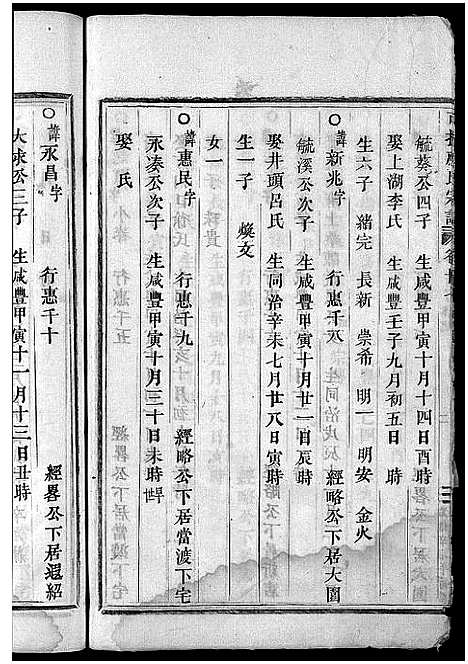 毓蔡公四子 生咸豐甲寅十月十四日酉時
娶上湖李氏 生咸豐壬子九月初五日 時
生六子 緒完 長新 崇希 明一 明安 金火
諱新兆字 行惠千八 經略公下居大園
毓溪公次子 生咸豐甲寅十月廿一日辰時
娶井頭呂氏 生同治辛未七月廿八日寅時
生一子 煥文
女一
諱惠民字 行惠千九 經略公下居當渡下宅
永湊公次子 生咸豐甲寅十月三十日未時
娶 氏
諱永昌字 行惠千十 經畧公下居遐紹
大球公三子 生咸豐甲寅十一月十三日丑時